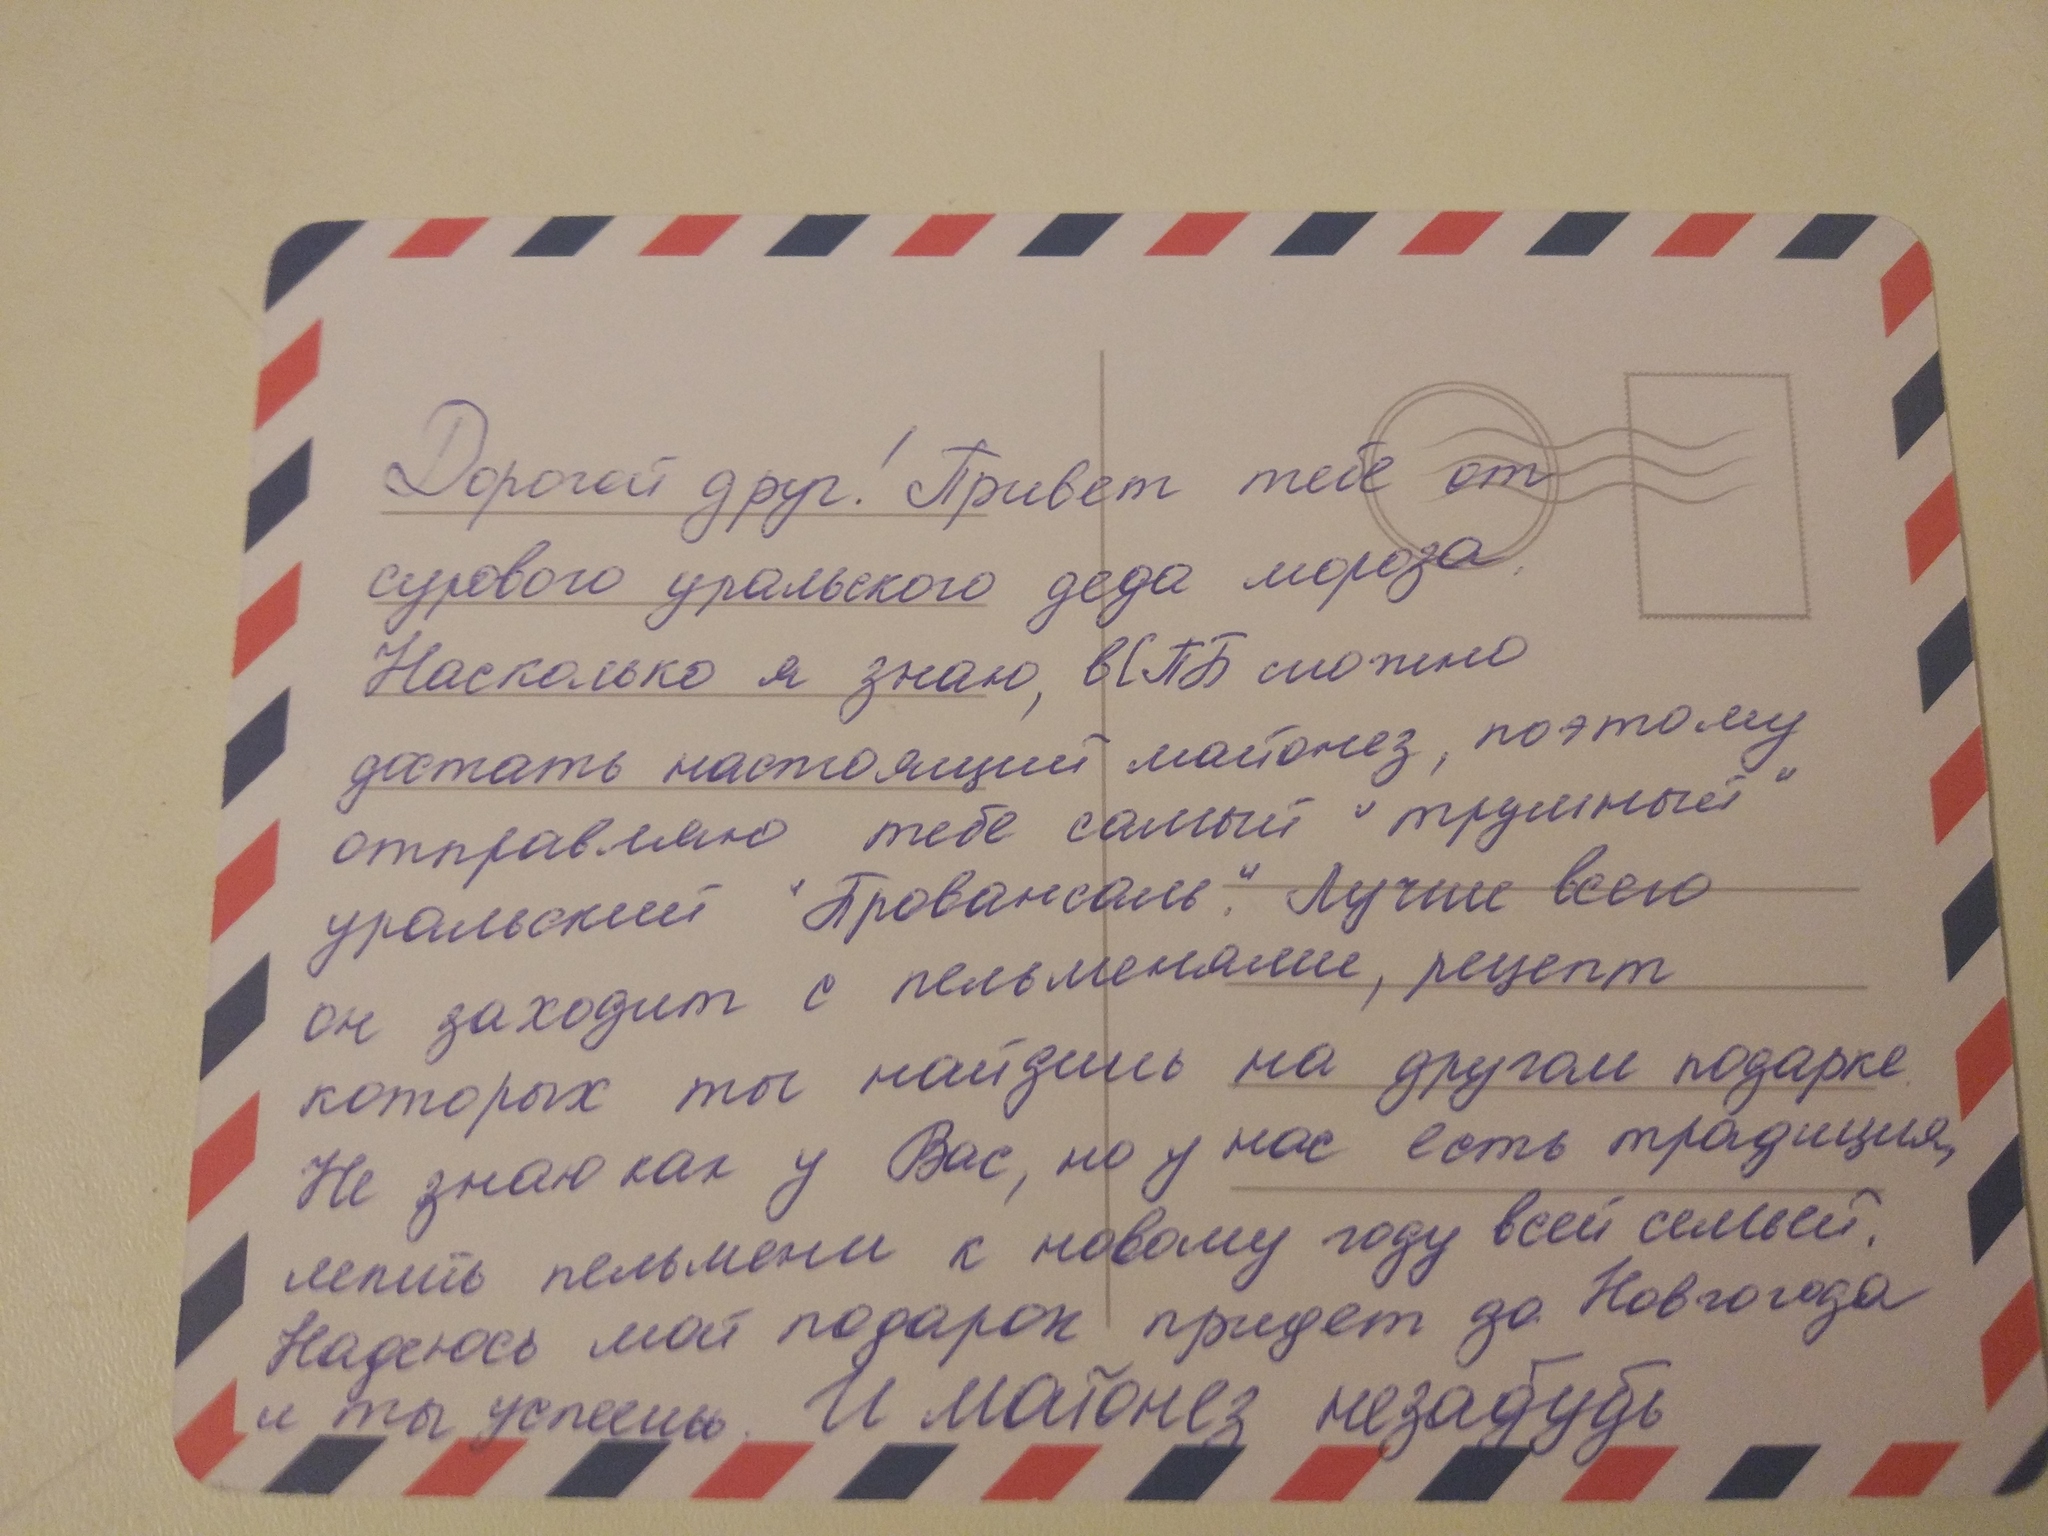 Дорогой друг! Привет тебе от
сурового уральского деда мороза.
Насколько я знаю, в СПБ сложно
достать настоящий майонез, поэтому
отправляю тебе самый "трушный"
уральский "Провансаль". Лучше всего
он заходит с пельменями, рецепт
которых ты найдешь на другом подарке.
Не знаю как у Вас, но у нас есть традиция,
лепить пельмени к новому году всей семьей.
Надеюсь мой подарок придет до Новгогода
и ты успеешь. И майонез незабудь